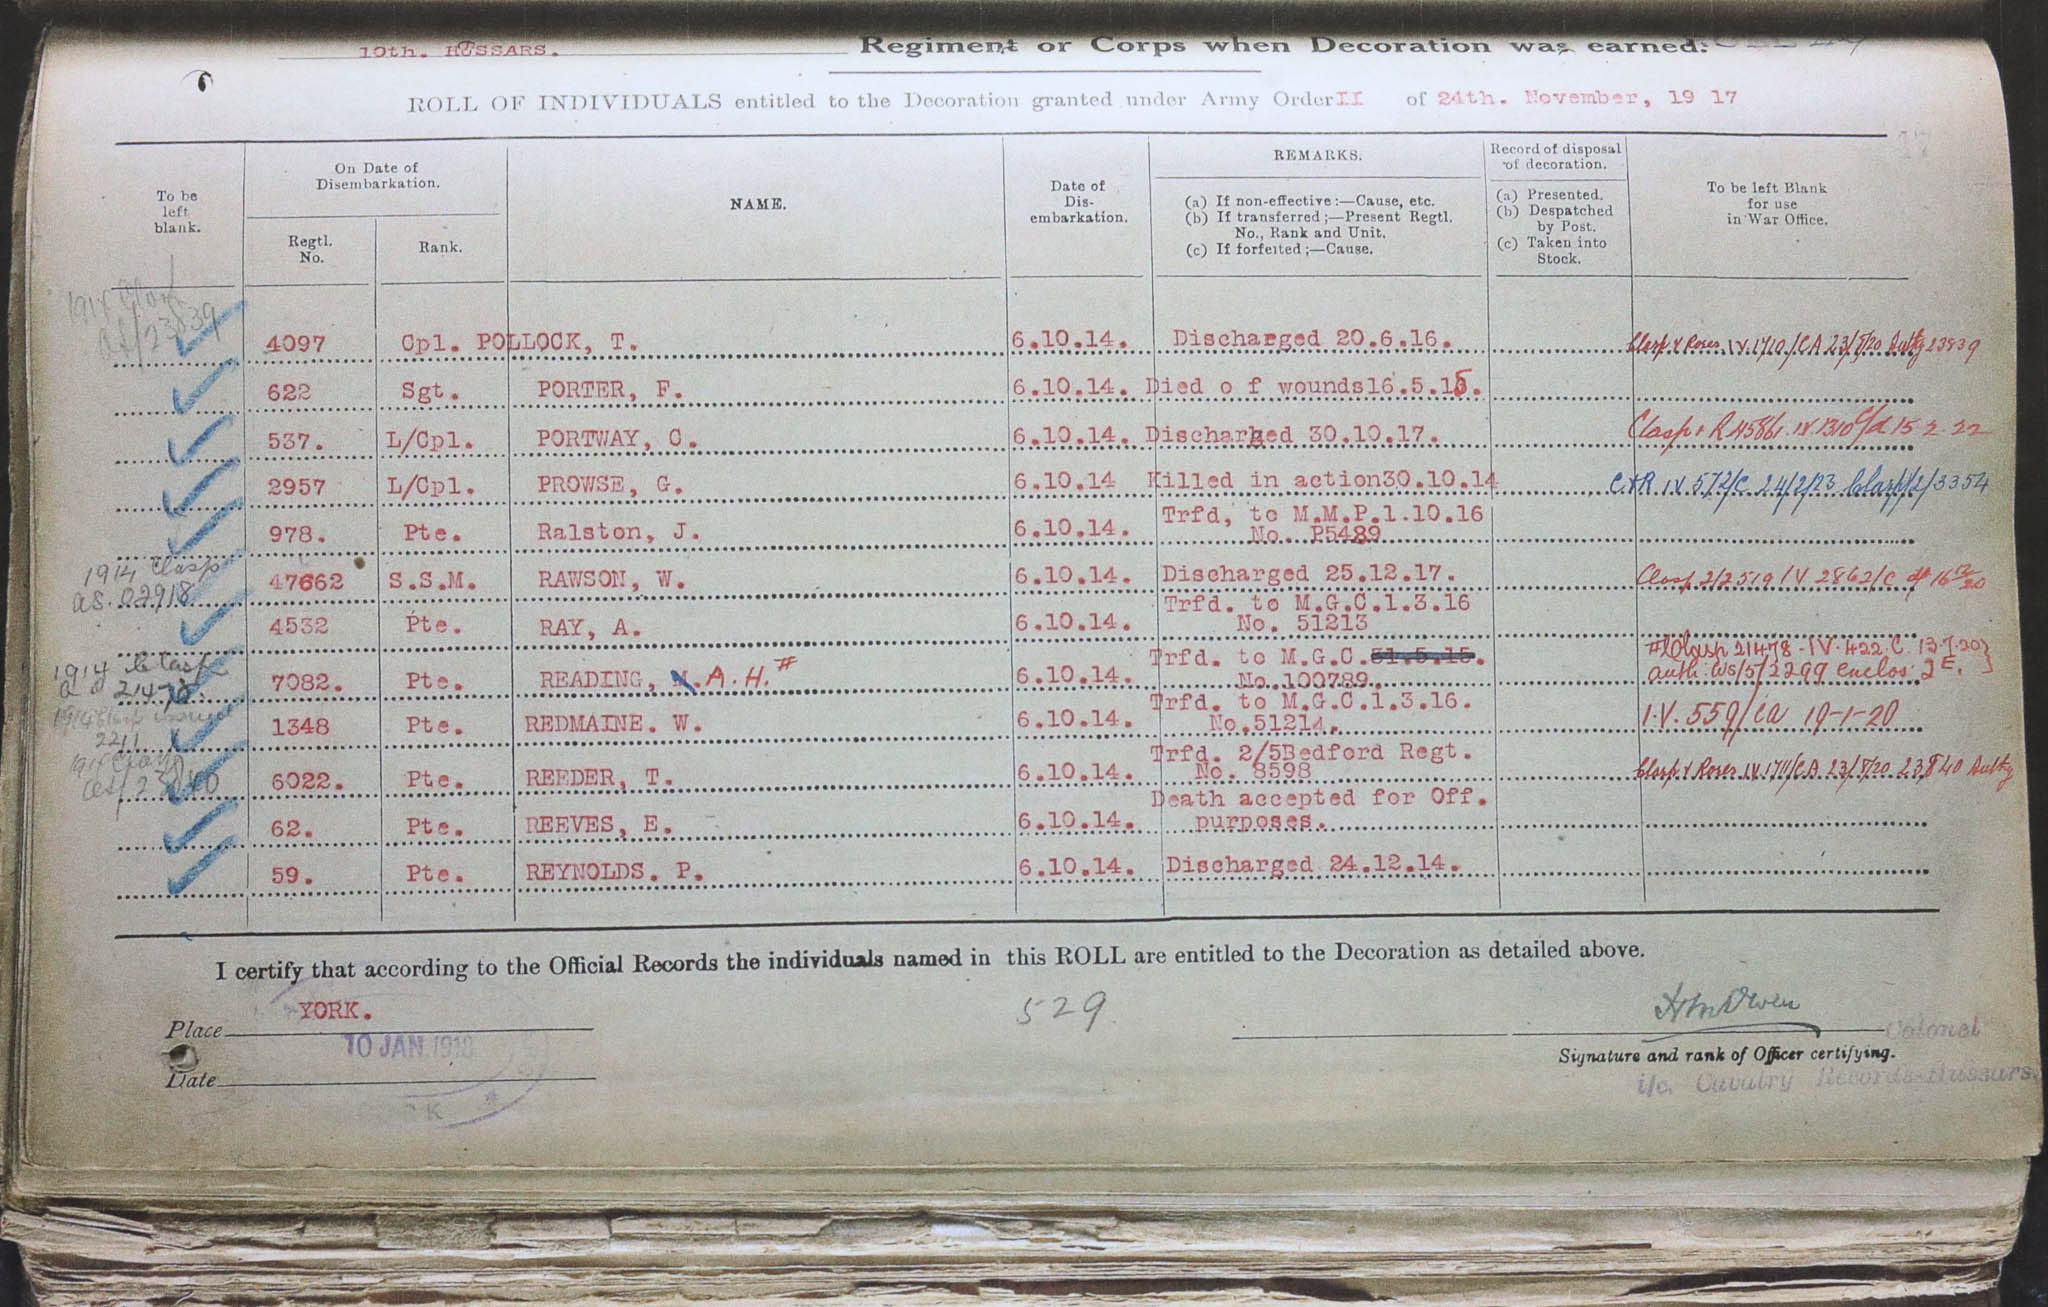 10th. HUSSARS. Regiment or Corps when Decoration was earned.
ROLL OF INDIVIDUALS entitled to the Decoration granted under Army Order II of 24th. November, 19 17
To be left blank.
On Date of Disembarkation.
Regtl. No.
Rank.
NAME.
Date of Dis-embarkation.
REMARKS.
(a) If non-effective:—Cause, etc.
(b) If transferred;—Present Regtl. No., Rank and Unit.
(c) If forfeited;—Cause.
Record of disposal of decoration.
(a) Presented.
(b) Despatched by Post.
(c) Taken into Stock.
To be left Blank for use in War Office.
1914 Clasp
4097 Cpl. POLLOCK, T. 6.10.14. Discharged 20.6.16. Clasp & Roses IV 1710/CA 23/8/20 Authy 23839
622 Sgt. PORTER, F. 6.10.14. Died o f wounds16.5.15.
537. L/Cpl. PORTWAY, C. 6.10.14. Discharhed 30.10.17. Clasp & R 15 2 22
2957 L/Cpl. PROWSE, G. 6.10.14 Killed in action30.10.14 C&R IV 572/C 24/2/23 Clasp/2/3354
978. Pte. Ralston, J. 6.10.14. Trfd, to M.M.P.1.10.16
No. P5489
1914 Clasp
47662 S.S.M. RAWSON, W. 6.10.14. Discharged 25.12.17. Clasp 2/2519 IV 2862/C
4532 Pte. RAY, A. 6.10.14. Trfd. to M.G.C.1.3.16
No. 51213
1914 Clasp
7082. Pte. READING, A.H.# 6.10.14. Trfd. to M.G.C.31.5.15. #Clasp 21478-IV.422.C.13.7.20}
No.100789. auth: WS/5/2299 enclos: 2E.
1348 Pte. REDMAINE. W. 6.10.14. Trfd. to M.G.C.1.3.16. I.V. 559/CA 19-1-20
No.51214.
6022. Pte. REEDER, T. 6.10.14. Trfd. 2/5Bedford Regt. Clasp & Roses IV 1711/CA 23/8/20 23840 Authy
No. 8598
62. Pte. REEVES, E. 6.10.14. Death accepted for Off.
purposes.
59. Pte. REYNOLDS. P. 6.10.14. Discharged 24.12.14.
I certify that according to the Official Records the individuals named in this ROLL are entitled to the Decoration as detailed above.
Place YORK.
529
10 JAN 1918
Date
Colonel
Signature and rank of Officer certifying.
i/c. Cavalry Records-Hussars.